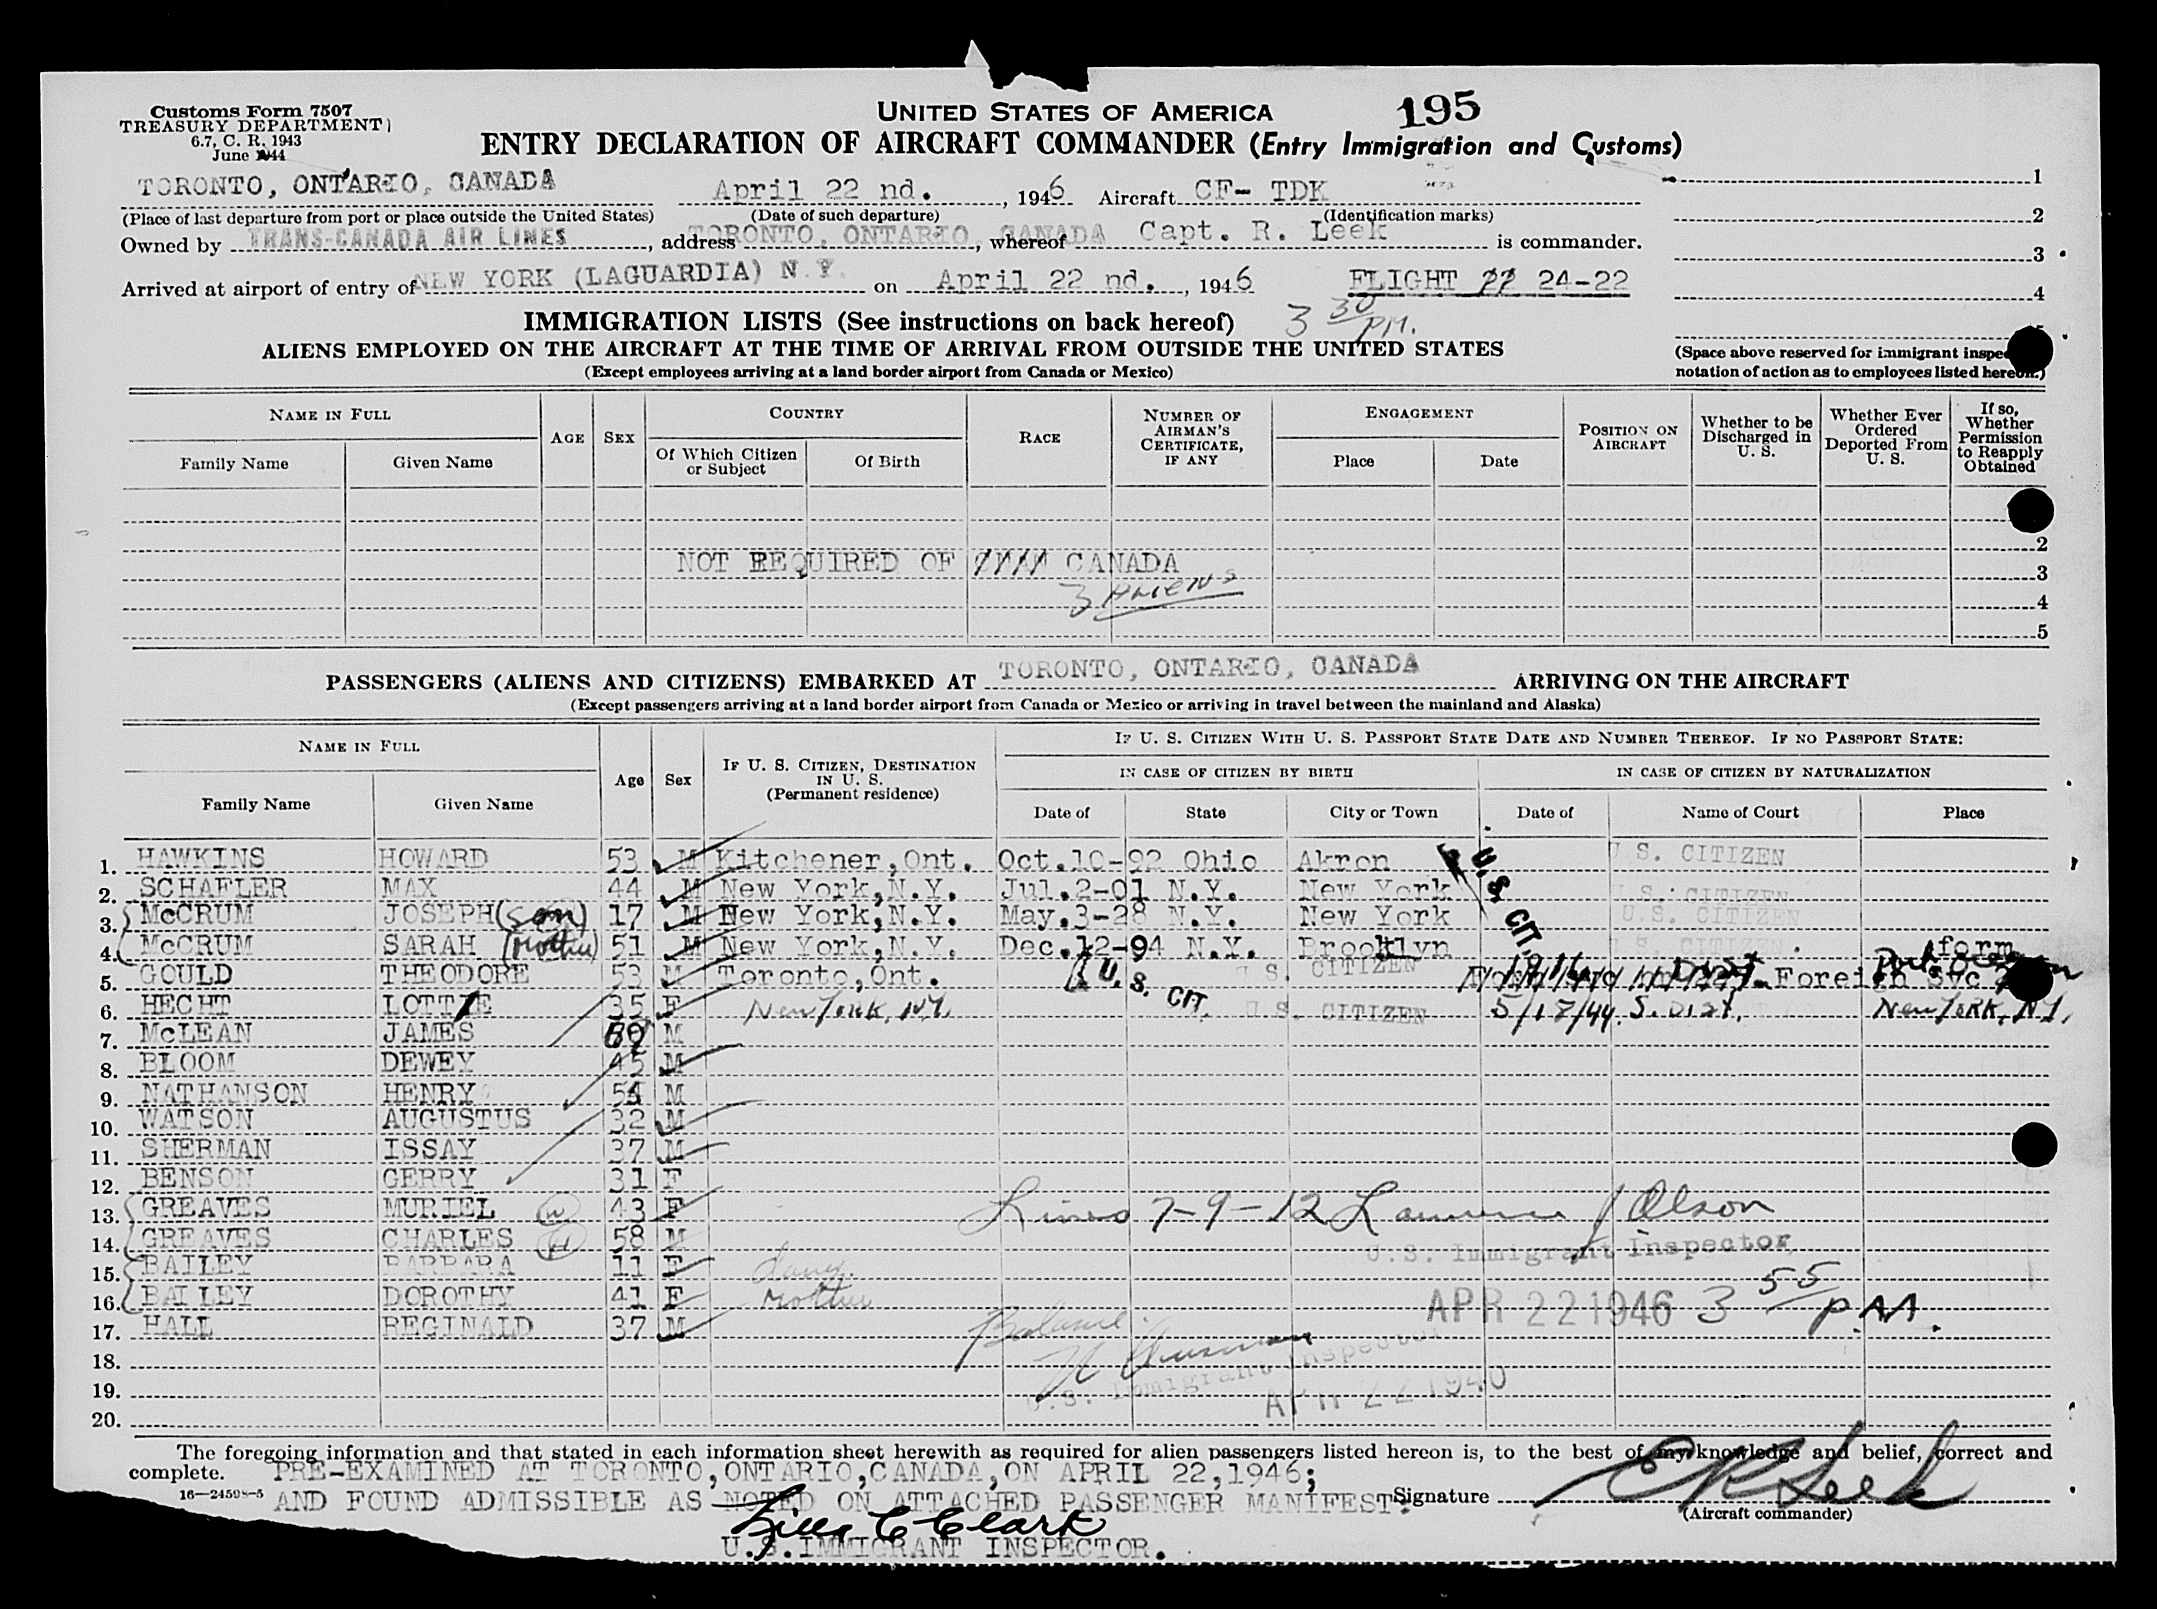 Customs Form 7507
TREASURY DEPARTMENT
6.7, C. R. 1943
June 1944
UNITED STATES OF AMERICA 195
ENTRY DECLARATION OF AIRCRAFT COMMANDER (Entry Immigration and Customs)
TORONTO, ONTARIO, CANADA April 22 nd., 1946 Aircraft CF- TDK
(Place of last departure from port or place outside the United States) (Date of such departure) (Identification marks)
Owned by TRANS-CANADA AIR LINES, address TORONTO, ONTARIO, CANADA, whereof Capt. R. Leek is commander.
Arrived at airport of entry of NEW YORK (LAGUARDIA) N.Y. on April 22 nd., 1946 FLIGHT 24-22
1
2
3
4
IMMIGRATION LISTS (See instructions on back hereof) 3 30 PM.
ALIENS EMPLOYED ON THE AIRCRAFT AT THE TIME OF ARRIVAL FROM OUTSIDE THE UNITED STATES
(Except employees arriving at a land border airport from Canada or Mexico)
(Space above reserved for immigrant inspe
notation of action as to employees listed hereon.)
NAME IN FULL AGE SEX COUNTRY RACE NUMBER OF AIRMAN'S CERTIFICATE, IF ANY ENGAGEMENT POSITION ON AIRCRAFT Whether to be Discharged in U. S. Whether Ever Ordered Deported From U. S. If so, Whether Permission to Reapply Obtained
Family Name Given Name Of Which Citizen or Subject Of Birth Place Date
2
NOT REQUIRED OF CANADA
3
3 ALIENS
4
5
PASSENGERS (ALIENS AND CITIZENS) EMBARKED AT TORONTO, ONTARIO, CANADA ARRIVING ON THE AIRCRAFT
(Except passengers arriving at a land border airport from Canada or Mexico or arriving in travel between the mainland and Alaska)
NAME IN FULL Age Sex IF U. S. CITIZEN, DESTINATION IN U. S. (Permanent residence) IF U. S. CITIZEN WITH U. S. PASSPORT STATE DATE AND NUMBER THEREOF. IF NO PASSPORT STATE:
IN CASE OF CITIZEN BY BIRTH IN CASE OF CITIZEN BY NATURALIZATION
Family Name Given Name Date of State City or Town Date of Name of Court Place
1. HAWKINS HOWARD 53 M Kitchener, Ont. Oct.10-92 Ohio Akron U.S. CITIZEN
2. SCHAFLER MAX 44 M New York, N.Y. Jul.2-01 N.Y. New York U.S. CITIZEN
U.S. CIT.
3. McCRUM JOSEPH (son) 17 M New York, N.Y. May.3-28 N.Y. New York U.S. CITIZEN
4. McCRUM SARAH (mother) 51 M New York, N.Y. Dec.12-94 N.Y. Brooklyn U.S. CITIZEN form
5. GOULD THEODORE 53 M Toronto, Ont. U.S. CIT. U.S. CITIZEN Dist. Foreign Svc
6. HECHT LOTTIE 35 F New York, N.Y. U.S. CITIZEN 5/17/44 S. Dist. New York, N.Y.
7. McLEAN JAMES M
8. BLOOM DEWEY 45 M
9. NATHANSON HENRY 54 M
10. WATSON AUGUSTUS 32 M
11. SHERMAN ISSAY 37 M
12. BENSON GERRY 31 F
13. GREAVES MURIEL (W) 43 F Lines 7-9-12 Lawrence J Olson
14. GREAVES CHARLES (H) 58 M U.S. Immigrant Inspector
15. BAILEY BARBARA 11 F
16. BAILEY DOROTHY 41 F mother APR 22 1946 3 55 P.M.
17. HALL REGINALD 37 M Balance
18.
U.S. Immigrant Inspector
19. APR 22 1946
20.
The foregoing information and that stated in each information sheet herewith as required for alien passengers listed hereon is, to the best of my knowledge and belief, correct and
complete. PRE-EXAMINED AT TORONTO, ONTARIO, CANADA, ON APRIL 22, 1946;
16—24598-5 AND FOUND ADMISSIBLE AS NOTED ON ATTACHED PASSENGER MANIFEST. Signature E R Leek
(Aircraft commander)
C Clark
U.S. IMMIGRANT INSPECTOR.